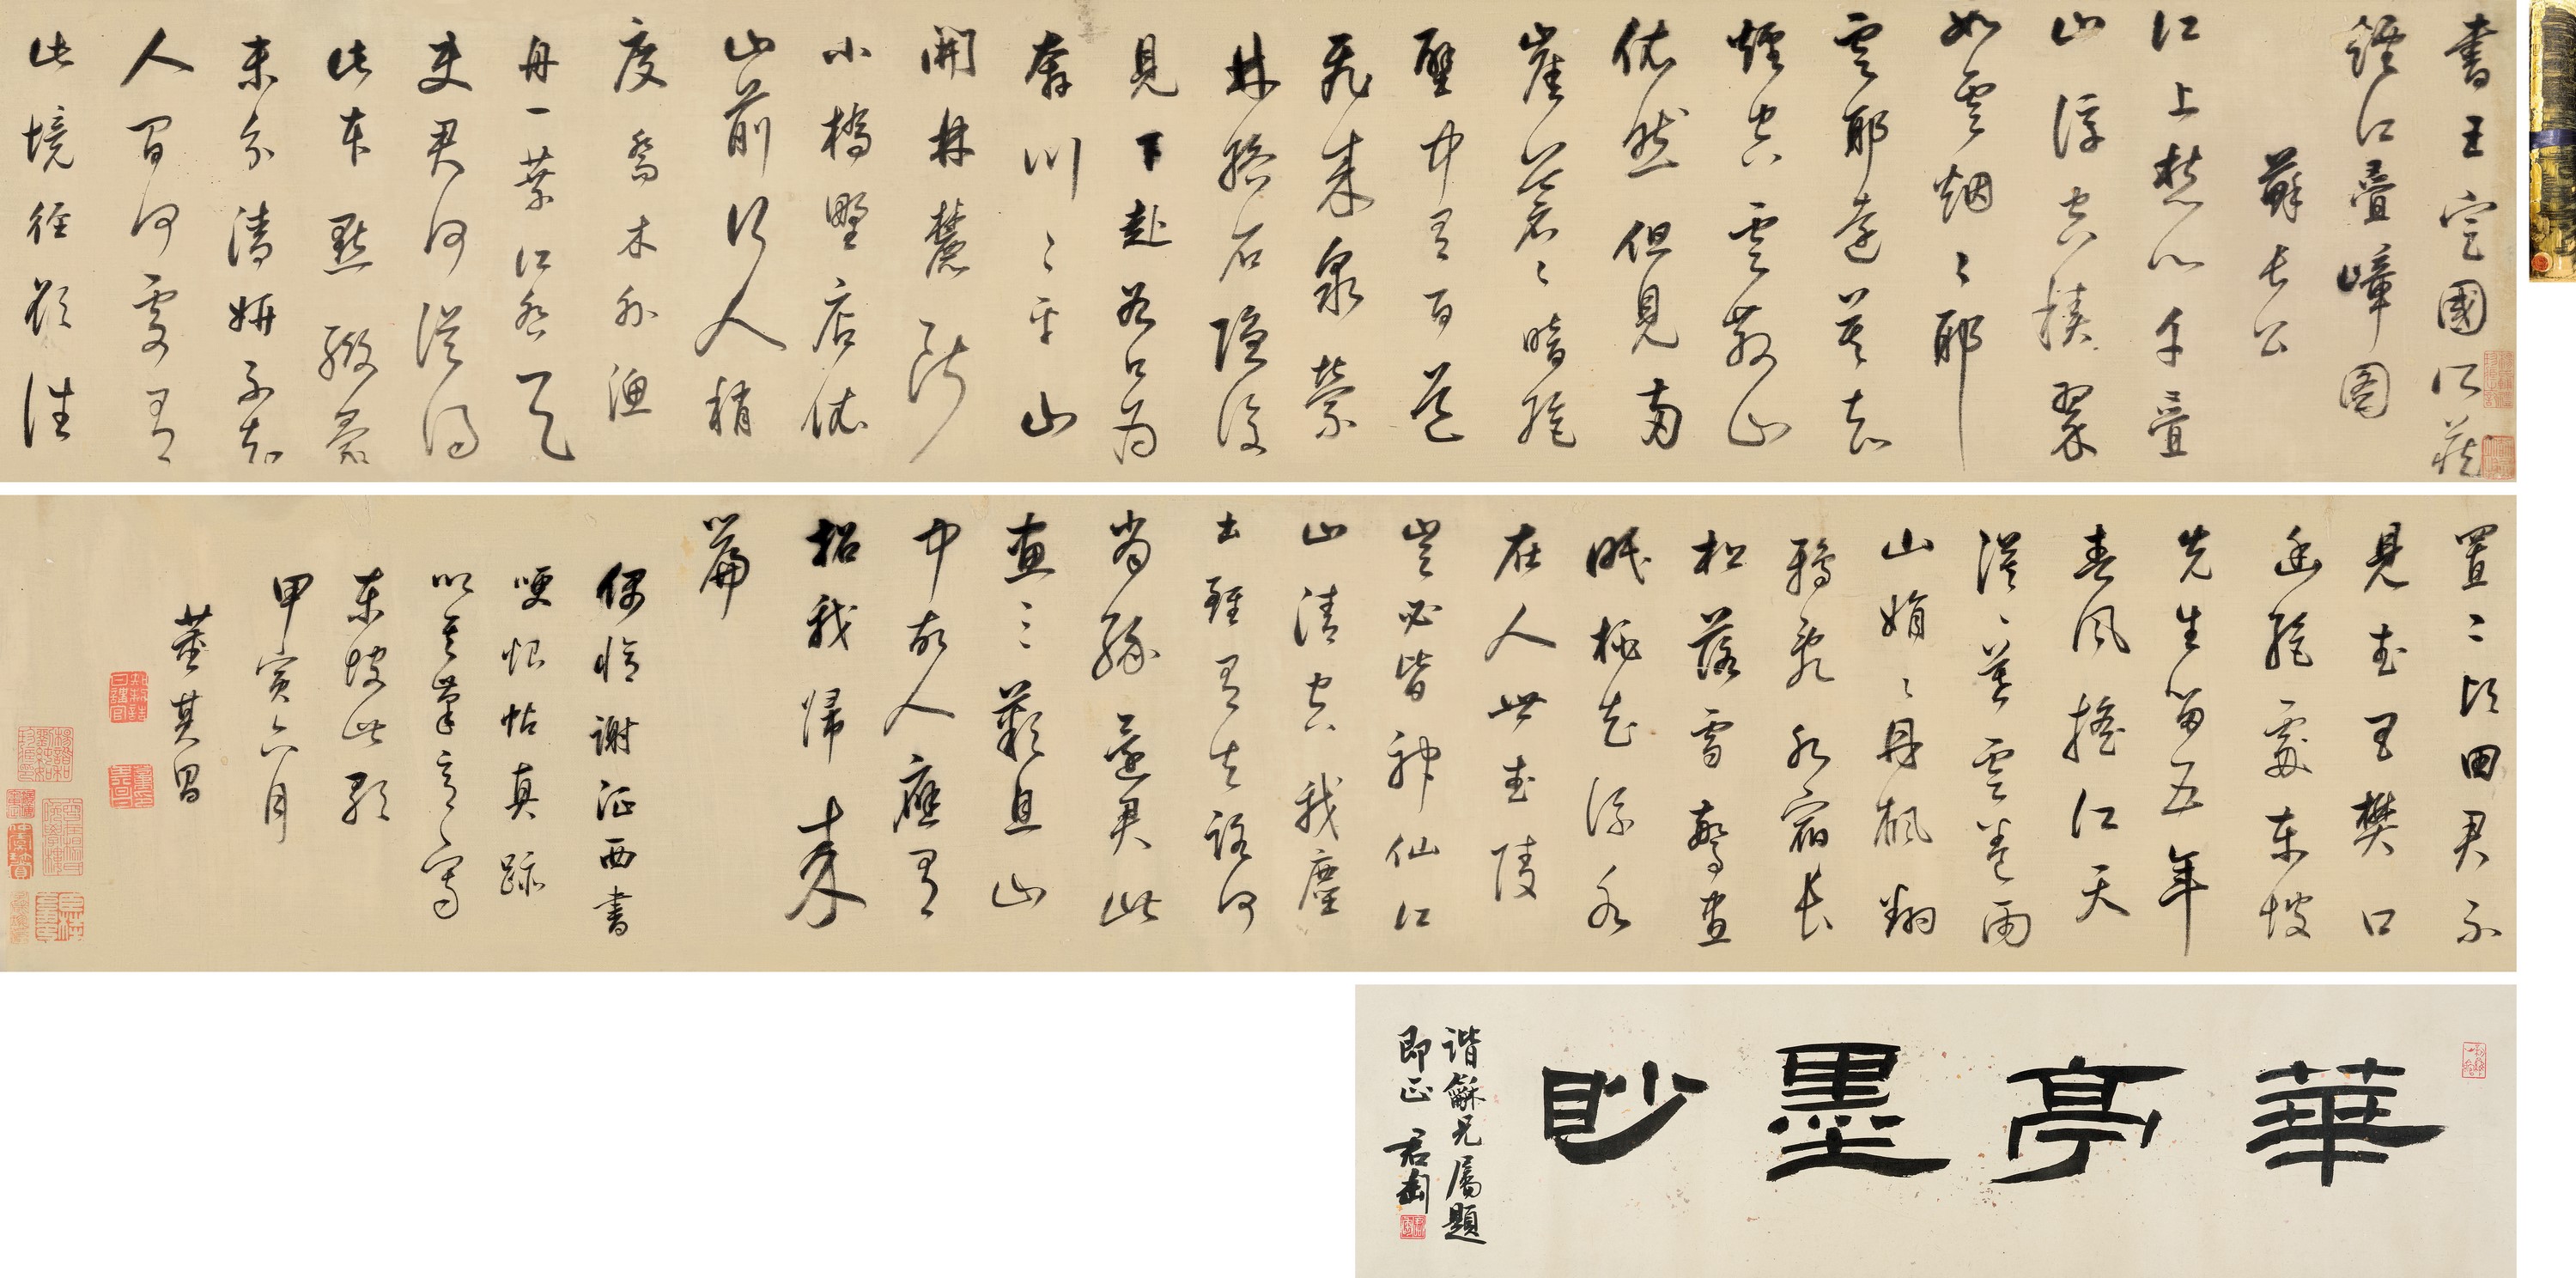 書王定國所藏
煙江疊嶂圖
蘇長公
江上愁心千疊
山浮空積翠
如雲烟烟耶
雲耶遠莫知
煙空雲散山
依然但見兩
崖蒼蒼暗絕
壁中有百道
飛來泉縈
林絡石隱復
見下赴谷口為
奔川川平山
開林麓斷
小橋野店依
山前行人稍
度喬木外漁
舟一葉江吞天
使君何從得
此本點綴毫
末分清妍不知
人間何處有
此境徑欲往
置二頃田君不
見武昌樊口
幽絕處東坡
先生留五年
春風搖江天
漠漠暮雲卷雨
山娟娟丹楓翻
鴉飛水宿長
松落雪驚晝
眠桃花流水
在人世武陵
豈必皆神仙江
山清空我塵
土雖有去路何
尚緣還君此
畫三歎息山
中故人應有
招我歸來
篇
偶臨謝征西書
哽恨帖真跡
以其筆意寫
東坡此歌
甲寅六月
董其昌
知制誥日講官
華亭墨眇
諧龢兄屬題
即正 君匋